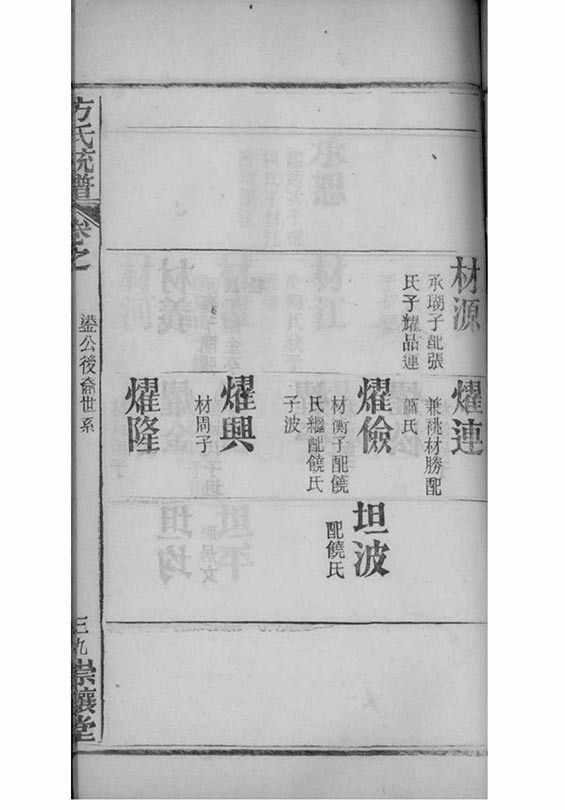 材源
承瑚子配張
氏子耀品連
燿連
兼祧材勝配
蕭氏
燿儉
材衡子配饒
氏繼配饒氏
子波
坦波
配饒氏
燿興
材周子
燿隆
方氏統譜
卷之
鍌公後裔世系
三九
崇讓堂